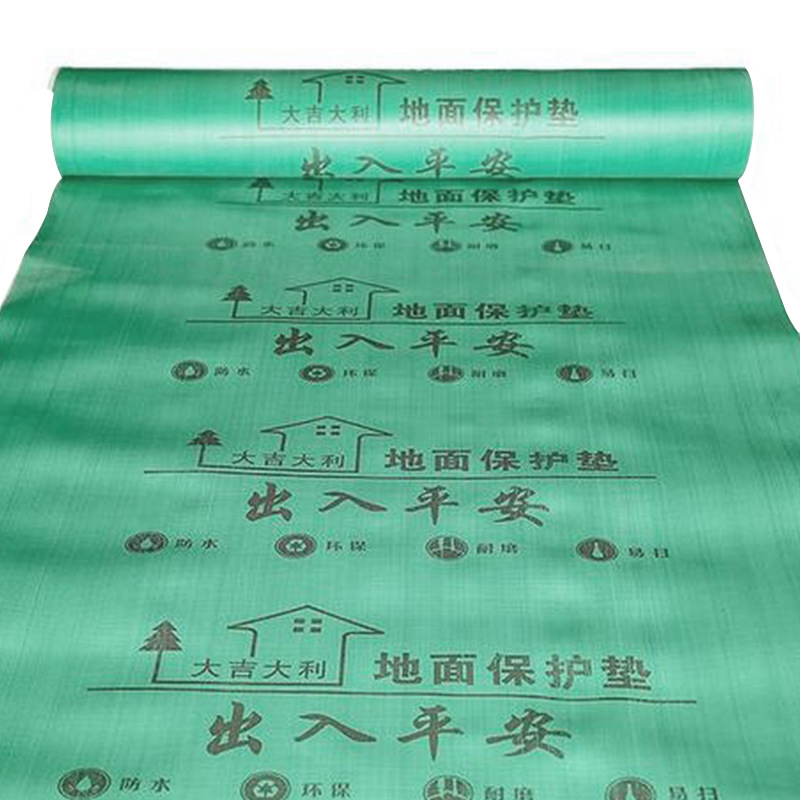 大吉大利 地面保护垫
出入平安
大吉大利 地面保护垫
出入平安
防水 环保 耐磨 易扫
大吉大利 地面保护垫
出入平安
防水 环保 耐磨 易扫
大吉大利 地面保护垫
出入平安
防水 环保 耐磨 易扫
大吉大利 地面保护垫
出入平安
防水 环保 耐磨 易扫